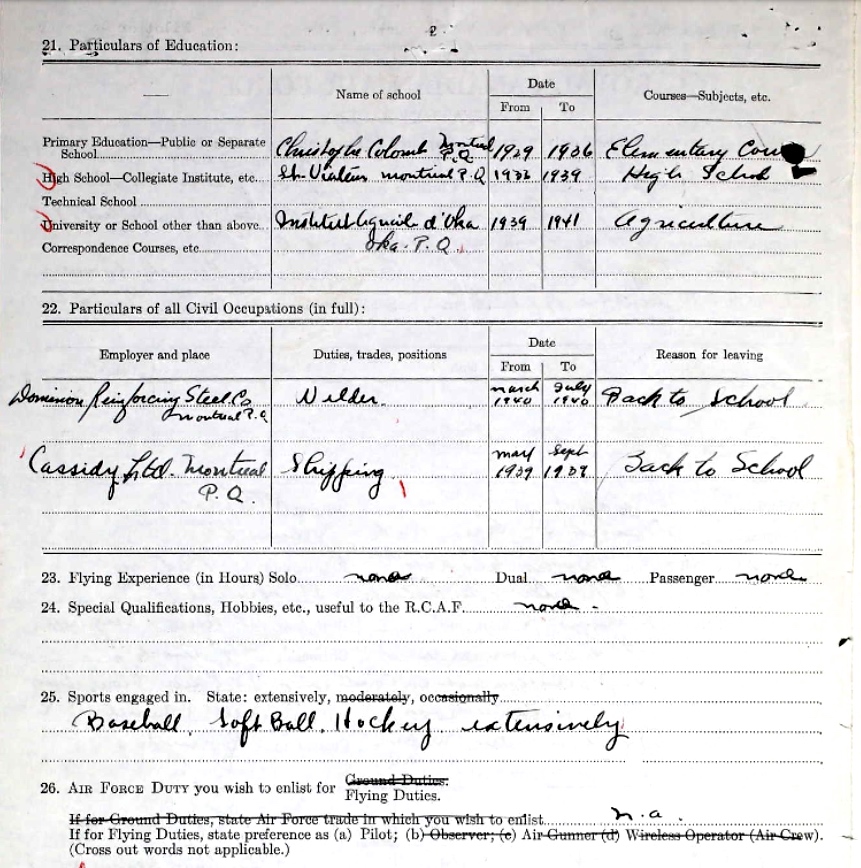 2
21. Particulars of Education:
Name of school
Date
From To
Courses—Subjects, etc.
Primary Education—Public or Separate
School Christophe Colomb Montreal P.Q 1929 1936 Elementary
High School—Collegiate Institute, etc. St. Viateur montreal P.Q 1936 1939 High School
Technical School
University or School other than above. Institut agricole d'Oka 1939 1941 Agriculture
Correspondence Courses, etc. Oka. P.Q.
22. Particulars of all Civil Occupations (in full):
Employer and place
Duties, trades, positions
Date
From To
Reason for leaving
Dominion Reinforcing Steel Co. montreal P.Q march 1940 July 1940 Back to School
Cassidy Ltd. Montreal P.Q. Shipping 1939 Sept Back to School
23. Flying Experience (in Hours) Solo none Dual none Passenger none
24. Special Qualifications, Hobbies, etc., useful to the R.C.A.F. none -
25. Sports engaged in. State: extensively, moderately, occasionally
Baseball, Soft Ball, Hockey extensively
26. AIR FORCE DUTY you wish to enlist for Ground Duties.
Flying Duties.
If for Ground Duties, state Air Force trade in which you wish to enlist n.a.
If for Flying Duties, state preference as (a) Pilot; (b) Observer; (c) Air Gunner (d) Wireless Operator (Air Crew).
(Cross out words not applicable.)